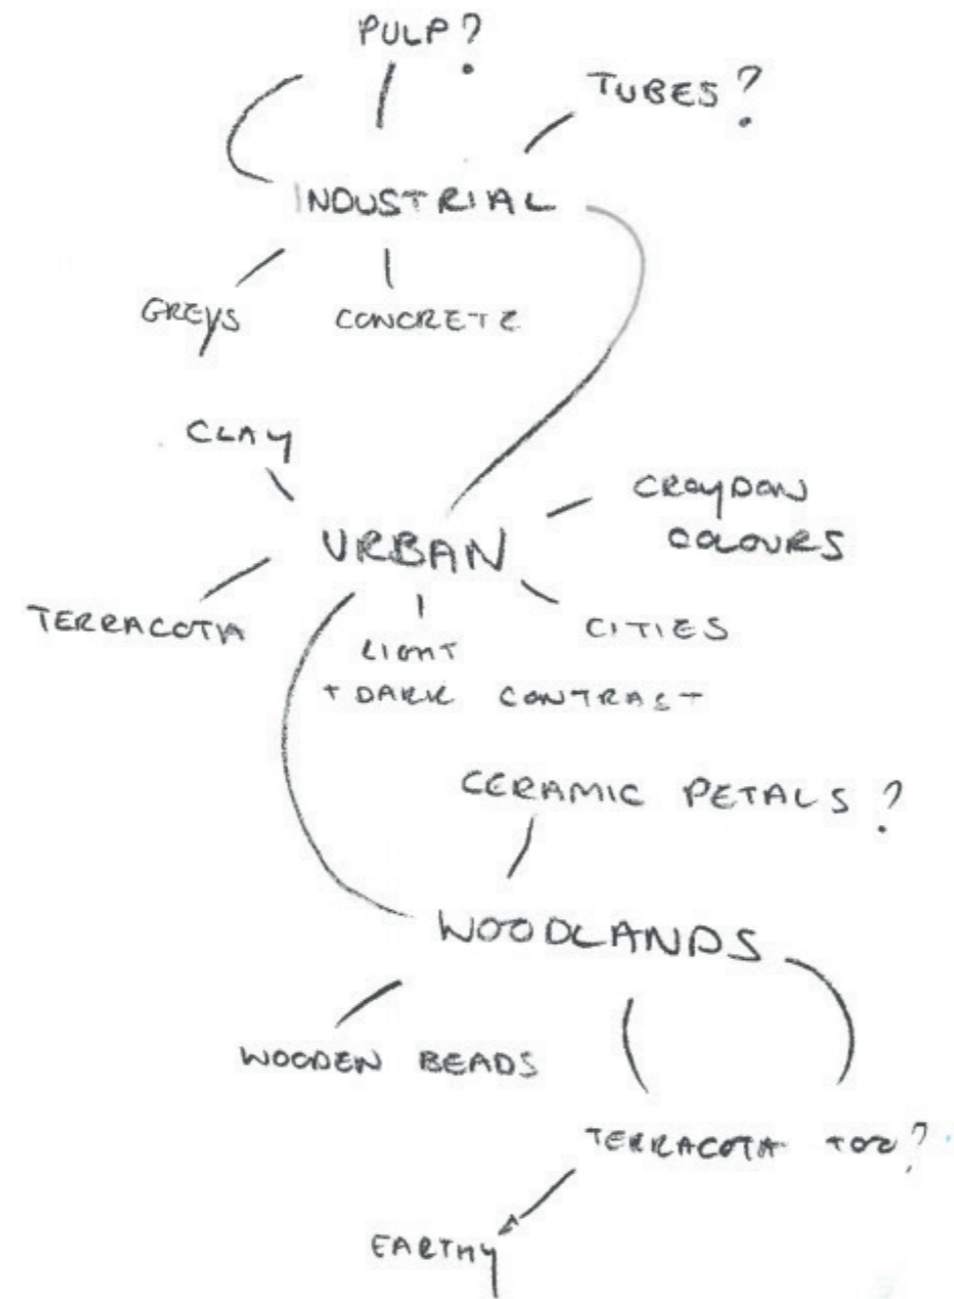 PULP?
TUBES?
INDUSTRIAL
GREYS
CONCRETE
CLAY
CROYDON
COLOURS
URBAN
TERRACOTA
CITIES
LIGHT
+ DARK CONTRAST
CERAMIC PETALS?
WOODLANDS
WOODEN BEADS
TERRACOTA TOO?
EARTHY